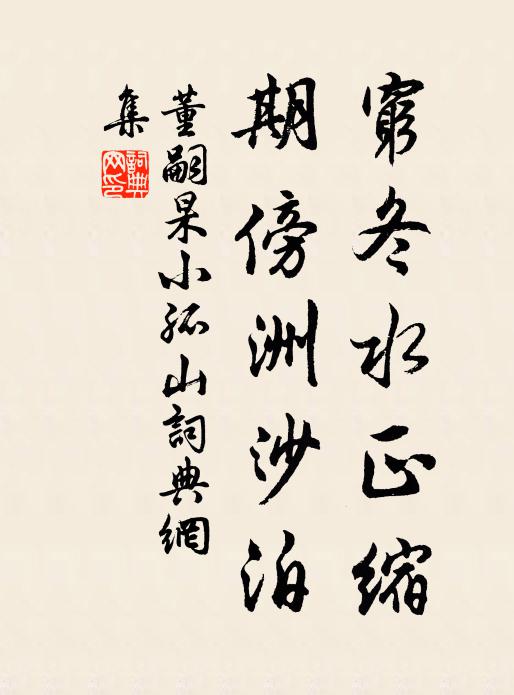 窮冬水正縮
期傍洲沙泊
董嗣杲小孤山詞典網
集
詞典網印